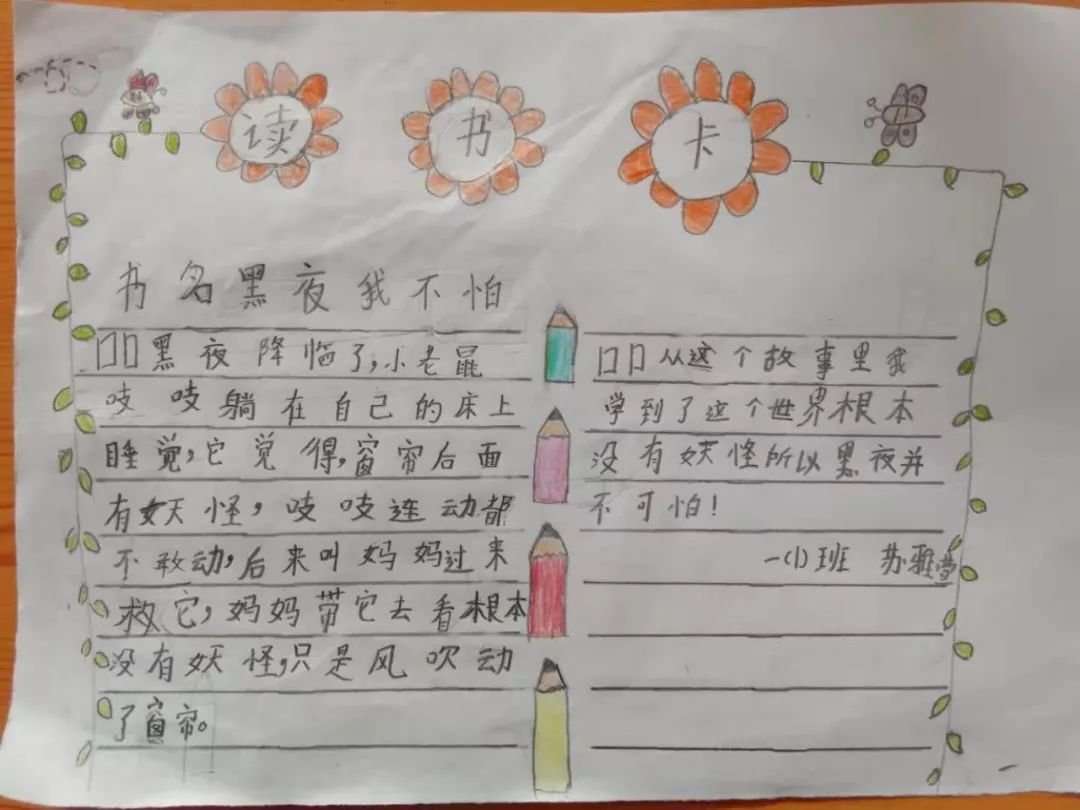 读书卡
书名黑夜我不怕
口口黑夜降临了,小老鼠
吱吱躺在自己的床上
睡觉,它觉得,窗帘后面
有妖怪,吱吱连动都
不敢动,后来叫妈妈过来
救它,妈妈带它去看根本
没有妖怪,只是风吹动
了窗帘。
口口从这个故事里我
学到了这个世界根本
没有妖怪所以黑夜并
不可怕!
一(1)班 苏雅莹